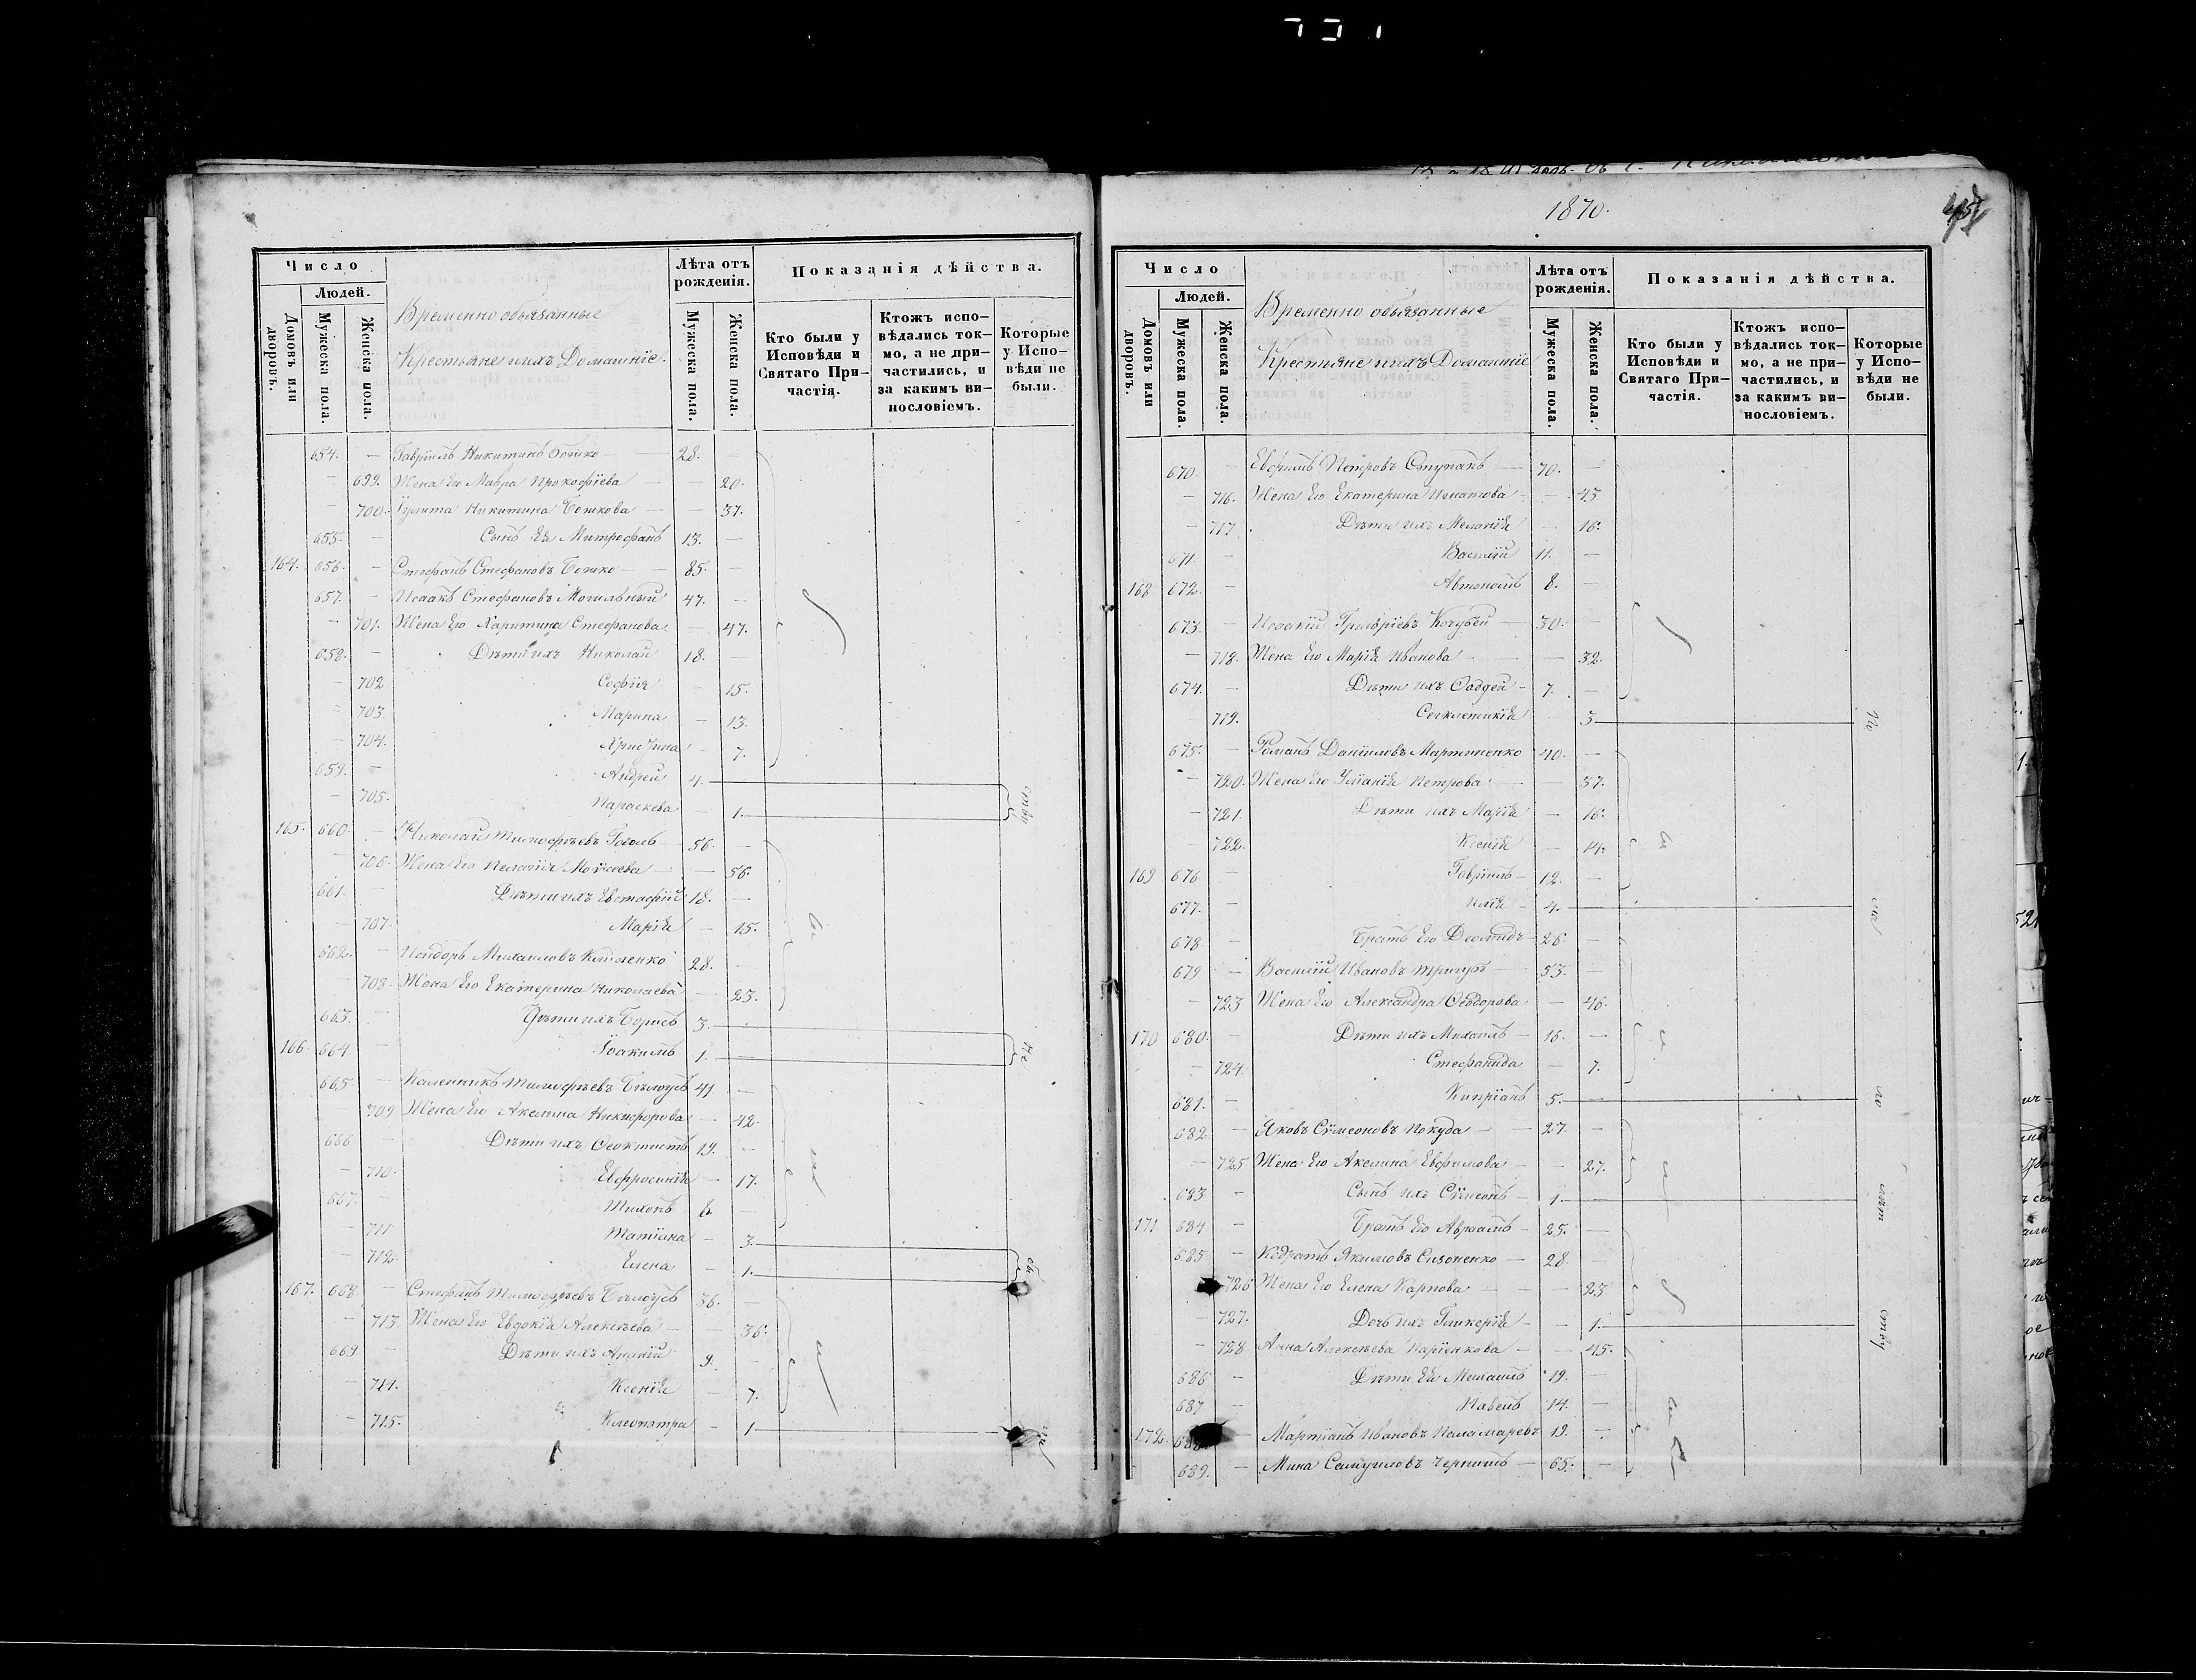 Число
Людей.
Домовъ или дворовъ.
Мужеска пола.
Женска пола.
Временно обязанные
Крестьяне и ихъ Домашніе.
Лѣта отъ рожденія.
Мужеска пола.
Женска пола.
Показанія дѣйства.
Кто были у Исповѣди и Святаго Причастія.
Ктожъ исповѣдались токмо, а не причастились, и за какимъ винословіемъ.
Которые у Исповѣди не были.
654. — Гавріилъ Никитинъ Божко — 28. —
— 699. Жена Его Мавра Прокофіева — — 20.
— 700. Іулита Никитина Божкова — — 37.
655. — Сынъ Ея Митрофанъ 13. —
164. 656. — Стефанъ Стефановъ Божко — 85. —
657. — Исаакъ Стефановъ Могильный 47. —
— 701. Жена Его Харитина Стефанова — 47.
658. — Дѣти ихъ Николай 18. —
— 702 Софія — 15.
— 703. Марина — 13.
— 704. Христина — 7.
659. — Андрей 4.
— 705. Параскева — 1.
165. 660. — Николай Тимофѣевъ 56. —
— 706. Жена Его Пелагія Моѵсеева — — 56.
661. — Дѣти ихъ Евстафій 18. —
— 707. Марія — 15.
662. — Исидоръ Михаиловъ 28. —
— 708. Жена Его Екатерина Николаева — 23.
663. — Дѣти ихъ Борисъ 3.
166. 664. — Іоакимъ 1.
665 — Тимофѣевъ Бѣлоусъ 41 —
— 709 Жена Его Акелина Никифорова — 42.
666 — Дѣти ихъ Ѳеоктистъ 19. —
— 710. Евфросинія — 17.
667. — Тихонъ 8 —
— 711 Татіана — 3.
— 712. Елена — 1.
167. 668. — Стефанъ Тимофѣевъ Бѣлоусъ 36. —
— 713. Жена Его Евдокія Алексѣева — — 36.
669 — Дѣти ихъ Ананій 9.
— 714. Ксенія 7.
— 715. Клеопатра — 1
1870.
Число
Людей.
Домовъ или дворовъ.
Мужеска пола.
Женска пола.
Временно обязанные
Крестьяне и ихъ Домашніе
Лѣта отъ рожденія.
Мужеска пола.
Женска пола.
Показанія дѣйства.
Кто были у Исповѣди и Святаго Причастія.
Ктожъ исповѣдались токмо, а не причастились, и за какимъ винословіемъ.
Которые у Исповѣди не были.
670. — Евфимъ Петровъ Ступакъ — 70. —
— 716. Жена Его Екатерина Игнатова — — 45.
— 717. Дѣти ихъ Меланія — 16.
671. — Василій 11. —
168 672. — Автономъ 8. —
673. — Исаакій Григоріевъ Кочубей — 30. —
— 718. Жена Его Марія Иванова — — 32.
674. — Дѣти ихъ Фаддей — 7. —
719. Сигклитикія 3
675. — Романъ Даніиловъ Мартыненко 40. —
— 720. Жена Его Уліанія Петрова — 37.
— 721. Дѣти ихъ Марія — 16.
— 722. Ксенія — 14.
169 676 — Гавріилъ — 12. —
677. — Илія — 4.
678. — Братъ Его Леонидъ — 26. —
679 — Василій Ивановъ 53. —
— 723 Жена Его Александра Ѳеодорова — 46.
170 680. — Дѣти ихъ Михаилъ — 16. —
— 724. Стефанида — 7.
681. — Кипріанъ 5.
682. — Яковъ Сѵмеоновъ Покуда — 27. —
— 725 Жена Его Акелина Евфимова — — 27.
683 — Сынъ ихъ Сѵмеонъ — 1.
171 684 — Братъ Его Авраамъ — 25. —
685. — Кодратъ Якимовъ Сизоненко — 28.
726 Жена Его Елена Карпова — — 23
— 727. Дочь ихъ Гликерія — — 1.
— 728 Анна Алексѣева — — 45.
686 — Дѣти Ея Михаилъ 19. —
687 — Павелъ 14. —
172. 688 — Мартинъ Ивановъ Паламаревъ 19. —
689. — Мина Самуиловъ — 65. —